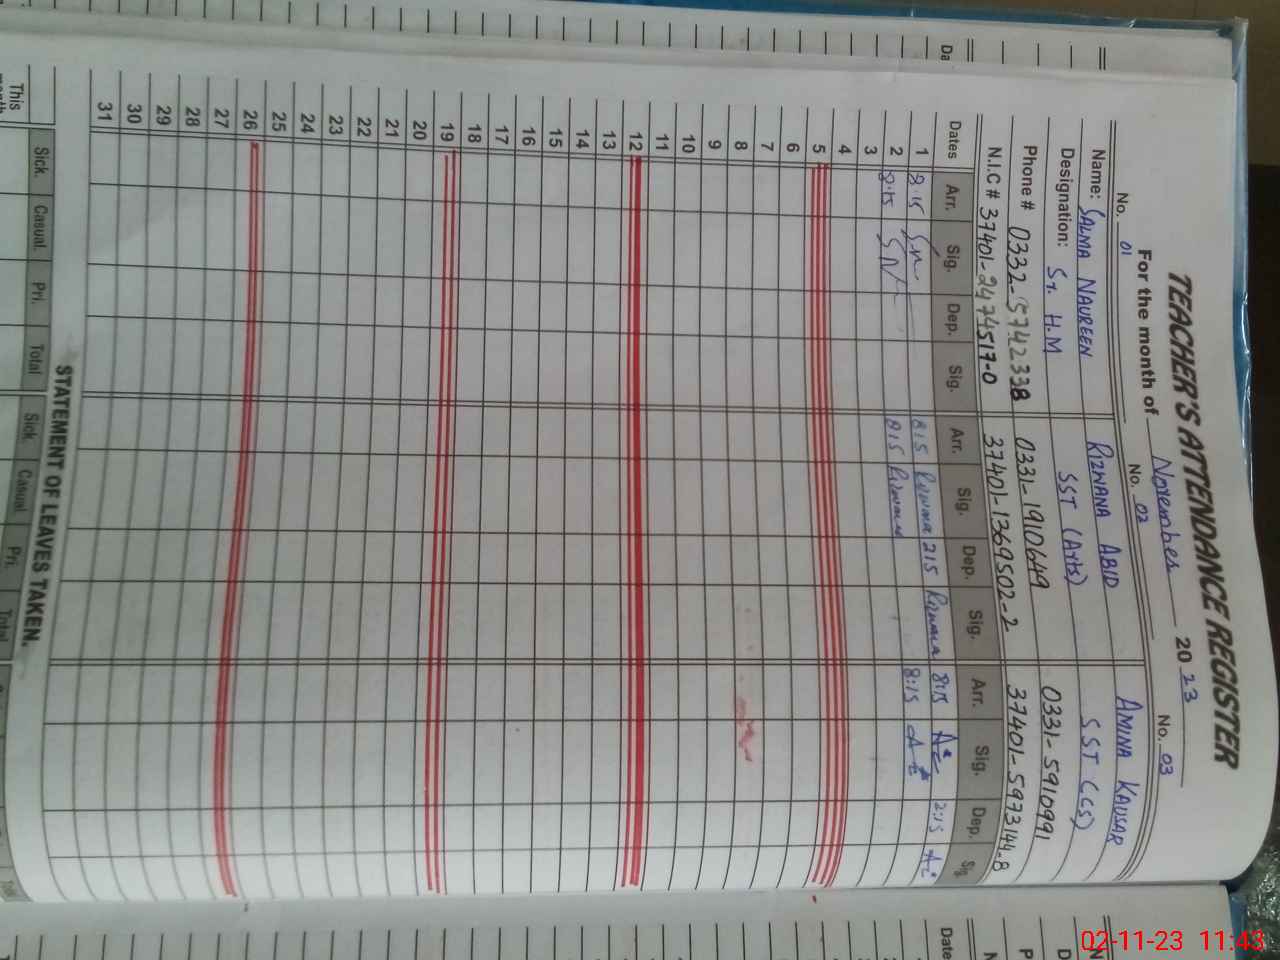 TEACHER'S ATTENDANCE REGISTER
For the month of November 2023
No. 01 No. 02 No. 03
Name: SALMA NAUREEN RIZWANA ABID AMINA KAUSAR
Designation: Sr. H.M SST (Arts) SST (CS)
Phone # 0332-5742338 0331-1910649 0331-5910991
N.I.C # 37401-2474517-0 37401-1369502-2 37401-5973144-8
Dates Arr. Sig. Dep. Sig. Arr. Sig. Dep. Sig. Arr. Sig. Dep. Sig
1 8:15 815 Rizwana 215 Rizwana 8:15 2:15
2 8:15 815 Rizwana 8:15
3
4
5
6
7
8
9
10
11
12
13
14
15
16
17
18
19
20
21
22
23
24
25
26
27
28
29
30
31
STATEMENT OF LEAVES TAKEN.
This Sick. Casual. Pri. Total Sick. Casual Pri. Total
month
Da
Date
02-11-23 11:43